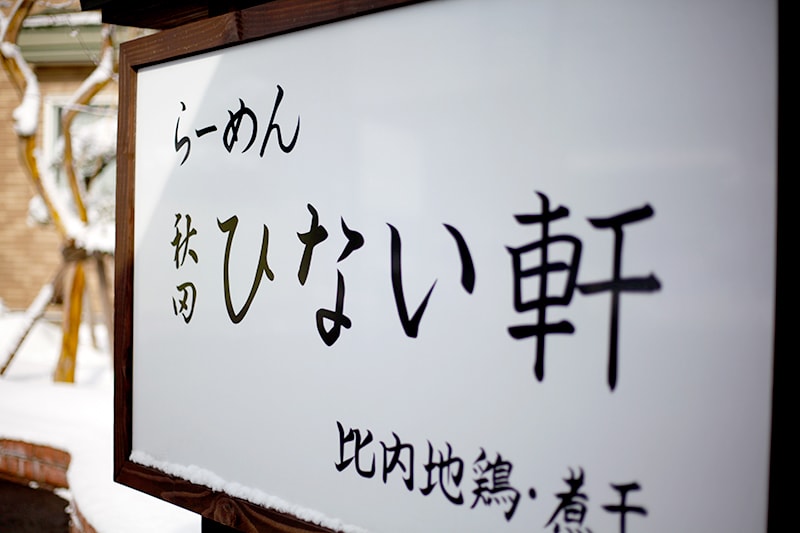 らーめん
秋田 ひない軒
比内地鶏・煮干